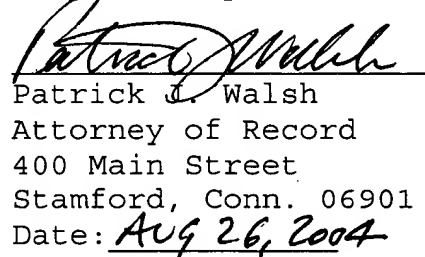 Patrick J. Walsh
Patrick J. Walsh
Attorney of Record
400 Main Street
Stamford, Conn. 06901
Date: AUG 26, 2004